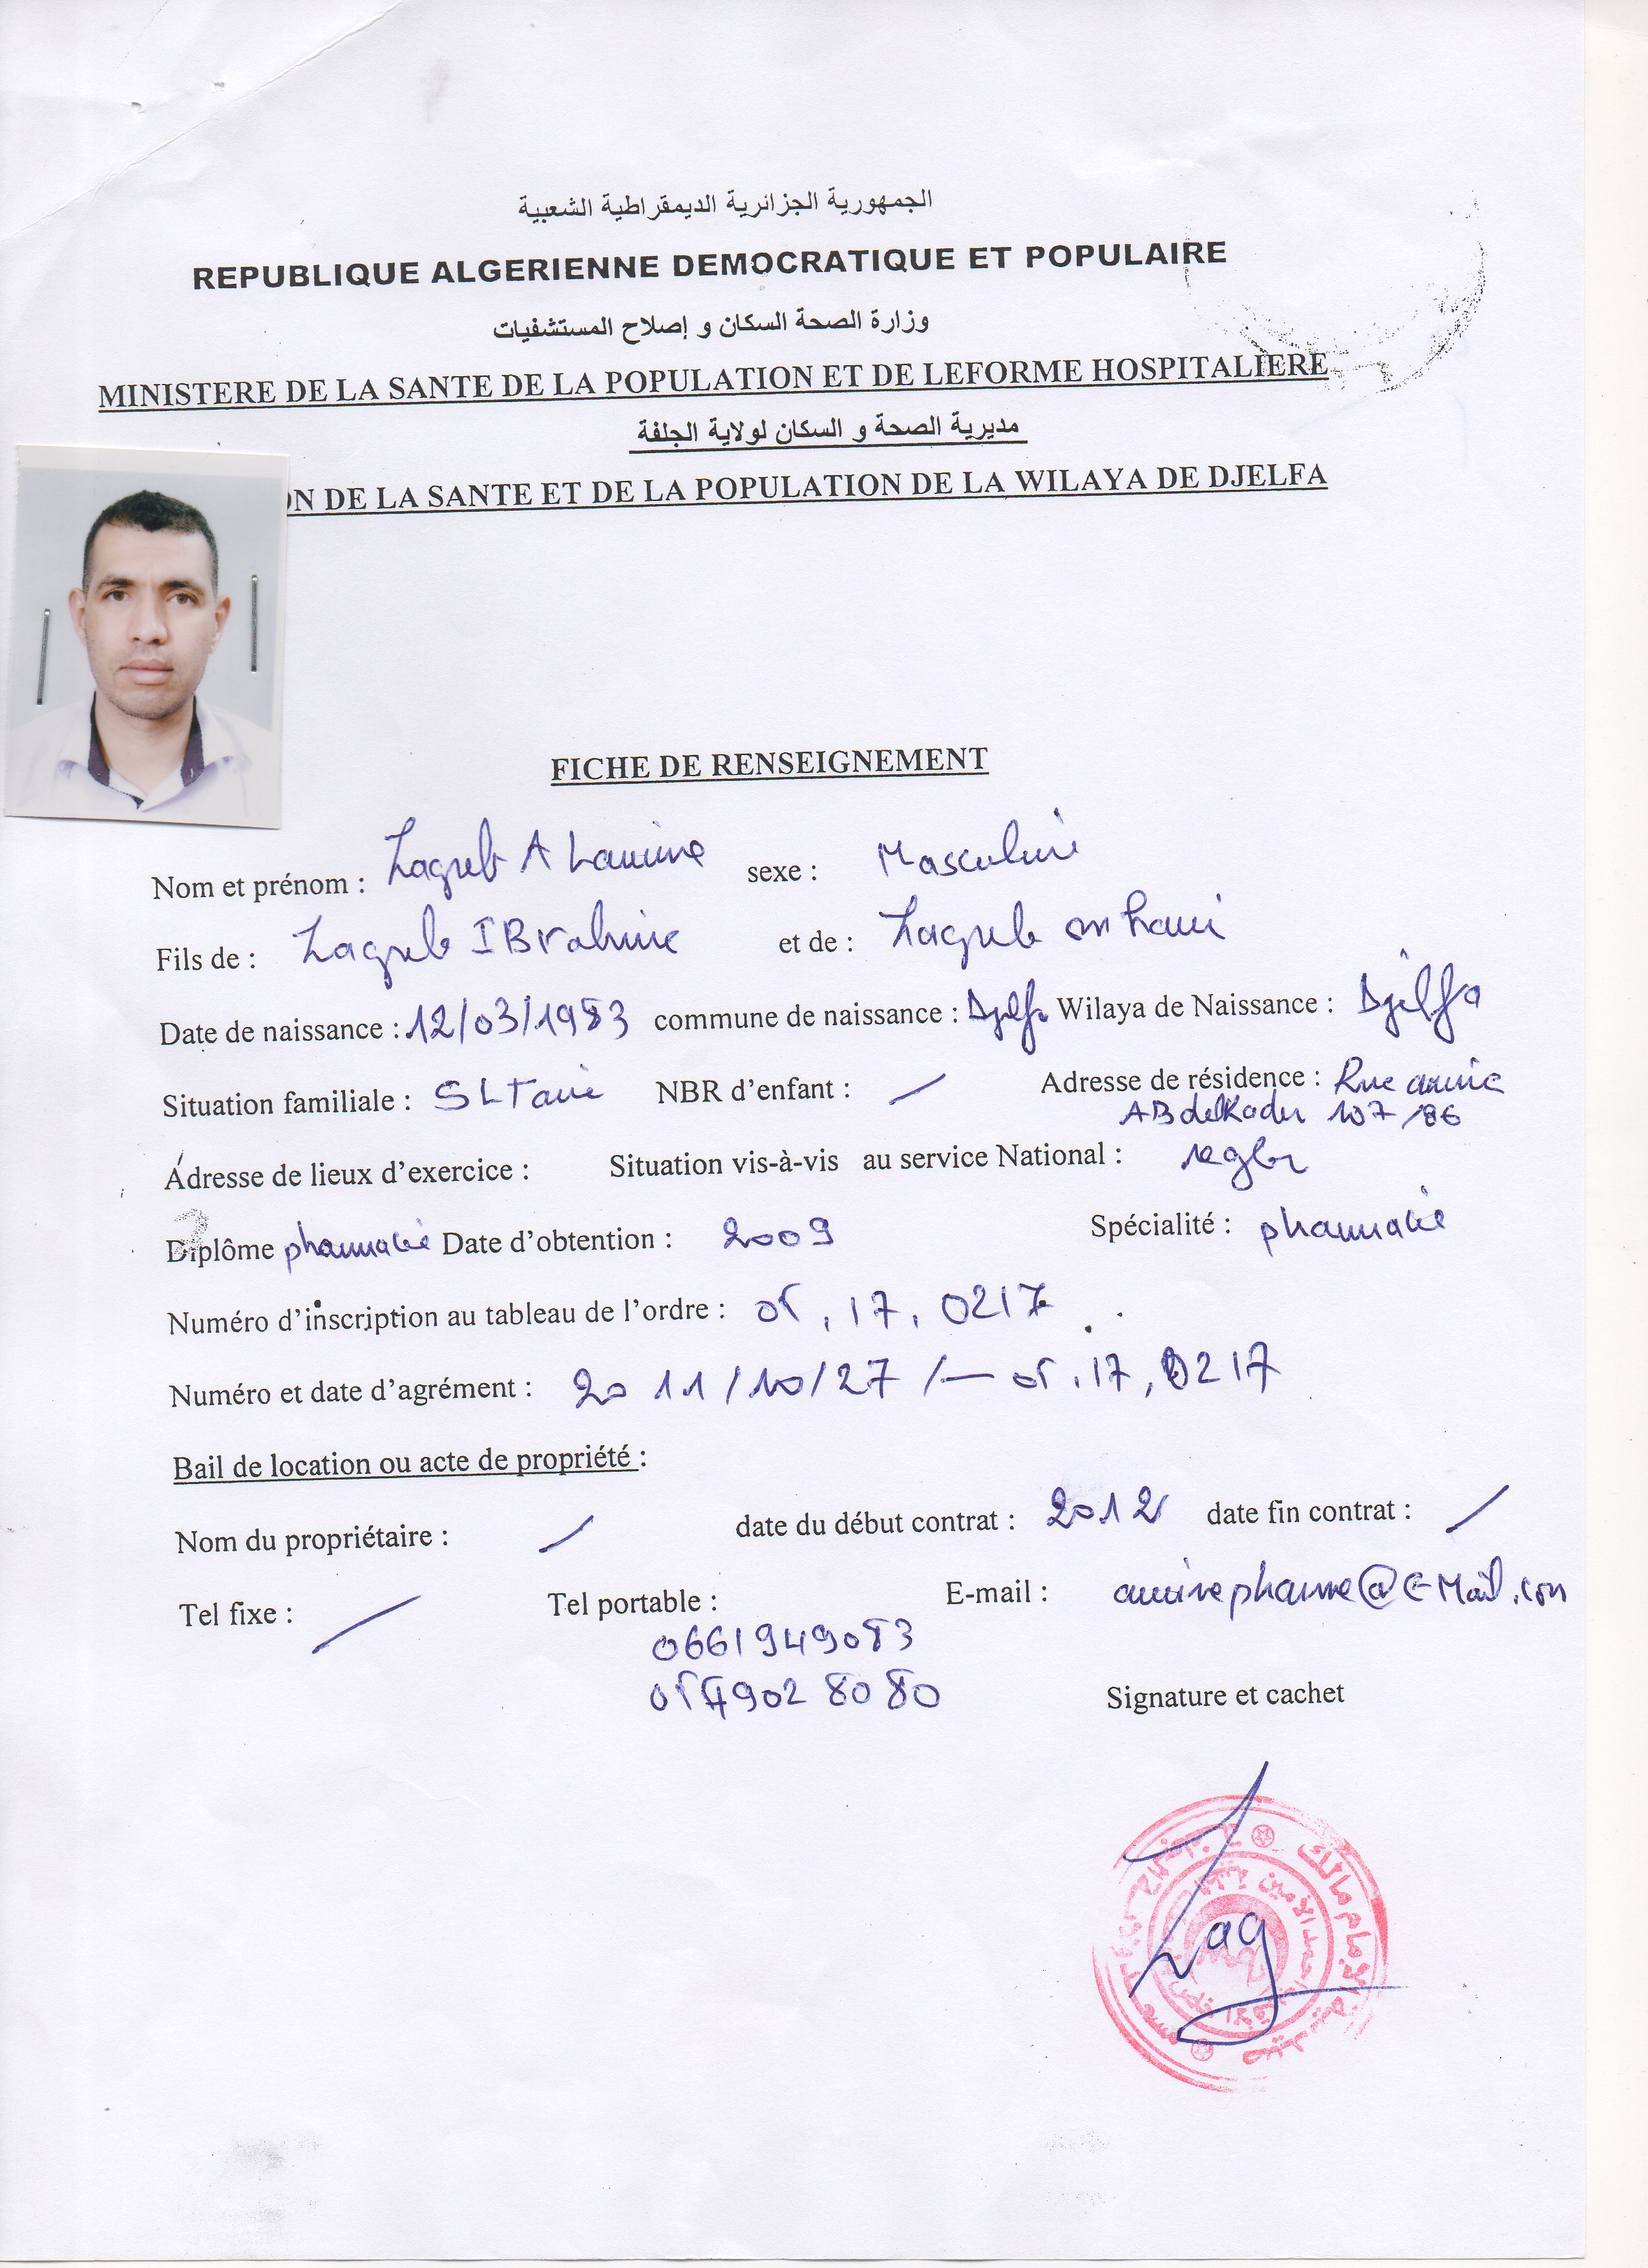 الجمهورية الجزائرية الديمقراطية الشعبية
REPUBLIQUE ALGERIENNE DEMOCRATIQUE ET POPULAIRE
وزارة الصحة السكان و إصلاح المستشفيات
MINISTERE DE LA SANTE DE LA POPULATION ET DE LEFORME HOSPITALIERE
مديرية الصحة و السكان لولاية الجلفة
ON DE LA SANTE ET DE LA POPULATION DE LA WILAYA DE DJELFA
FICHE DE RENSEIGNEMENT
Nom et prénom : Zagreb A Lamine sexe : Masculin
Fils de : Zagreb IBrahim et de : Zagreb om hani
Date de naissance : 12/03/1983 commune de naissance : Djelfa Wilaya de Naissance : Djelfa
Situation familiale : NBR d'enfant : / Adresse de résidence : Rue
ABdelKader 107/86
Adresse de lieux d'exercice : Situation vis-à-vis au service National :
Diplôme pharmacie Date d'obtention : 2009 Spécialité : pharmacie
Numéro d'inscription au tableau de l'ordre : 05, 17, 0217
Numéro et date d'agrément : 2011/10/27 /— 05, 17, 0217
Bail de location ou acte de propriété :
Nom du propriétaire : / date du début contrat : 2012 date fin contrat : /
Tel fixe : / Tel portable : E-mail :
0661949083
Signature et cachet
Zag